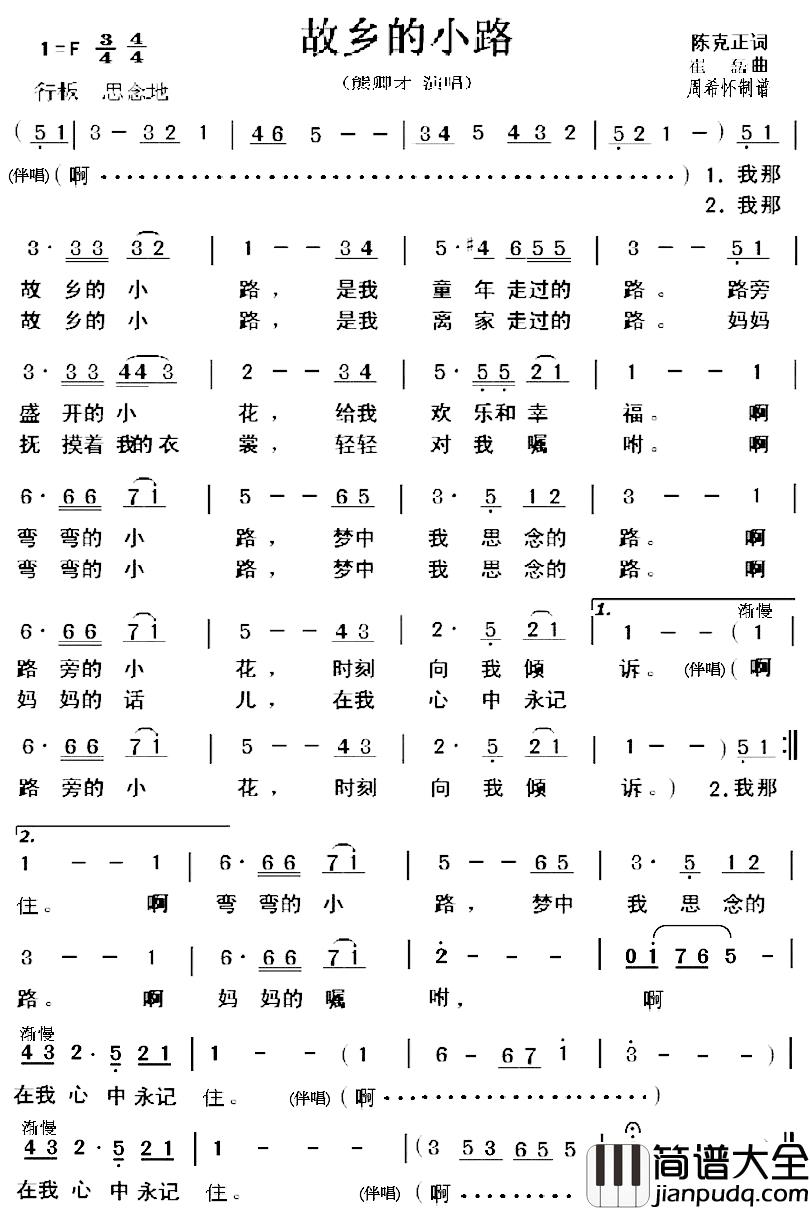 故乡的小路
1=F 3/4 4/4
陈克正词
崔 磊曲
周希怀制谱
行板 思念地
（熊卿才 演唱）
(5 1 | 3 - 3 2 1 | 4 6 5 - - | 3 4 5 4 3 2 | 5 2 1 - ) | 5 1
(伴唱)(啊 ·····) 1. 我那
2. 我那
3· 3 3 3 2 | 1 - - 3 4 | 5· #4 6 5 5 | 3 - - 5 1 |
故 乡的 小 路， 是我 童 年 走过的 路。 路旁
故 乡的 小 路， 是我 离 家 走过的 路。 妈妈
3· 3 3 4 4 3 | 2 - - 3 4 | 5· 5 5 2 1 | 1 - - 1 |
盛 开的 小 花， 给我 欢 乐和 幸 福。 啊
抚 摸着 我的 衣 裳， 轻轻 对 我 嘱 咐。 啊
6· 6 6 7 i | 5 - - 6 5 | 3· 5 1 2 | 3 - - 1 |
弯 弯的 小 路， 梦中 我 思 念的 路。 啊
弯 弯的 小 路， 梦中 我 思 念的 路。 啊
1. 渐慢
6· 6 6 7 i | 5 - - 4 3 | 2· 5 2 1 | 1 - - (1 |
路 旁的 小 花， 时刻 向 我 倾 诉。 (伴唱)(啊
妈 妈的 话 儿， 在我 心 中 永记
6· 6 6 7 i | 5 - - 4 3 | 2· 5 2 1 | 1 - - ) 5 1 :‖
路 旁的 小 花， 时刻 向 我 倾 诉。) 2. 我那
2.
1 - - 1 | 6· 6 6 7 i | 5 - - 6 5 | 3· 5 1 2 |
住。 啊 弯 弯的 小 路， 梦中 我 思 念的
3 - - 1 | 6· 6 6 7 i | 2 - - - | 0 i 7 6 5 - |
路。 啊 妈 妈的 嘱 咐， 啊
渐慢
4 3 2· 5 2 1 | 1 - - (1 | 6 - 6 7 i | 3 - - ) |
在我 心 中 永记 住。 (伴唱)(啊 ·····)
渐慢
4 3 2· 5 2 1 | 1 - - - | (3 5 3 6 5 | i - - - ) ‖
在我 心 中 永记 住。 (伴唱)(啊 ·····
简谱大全
jianpudq.com